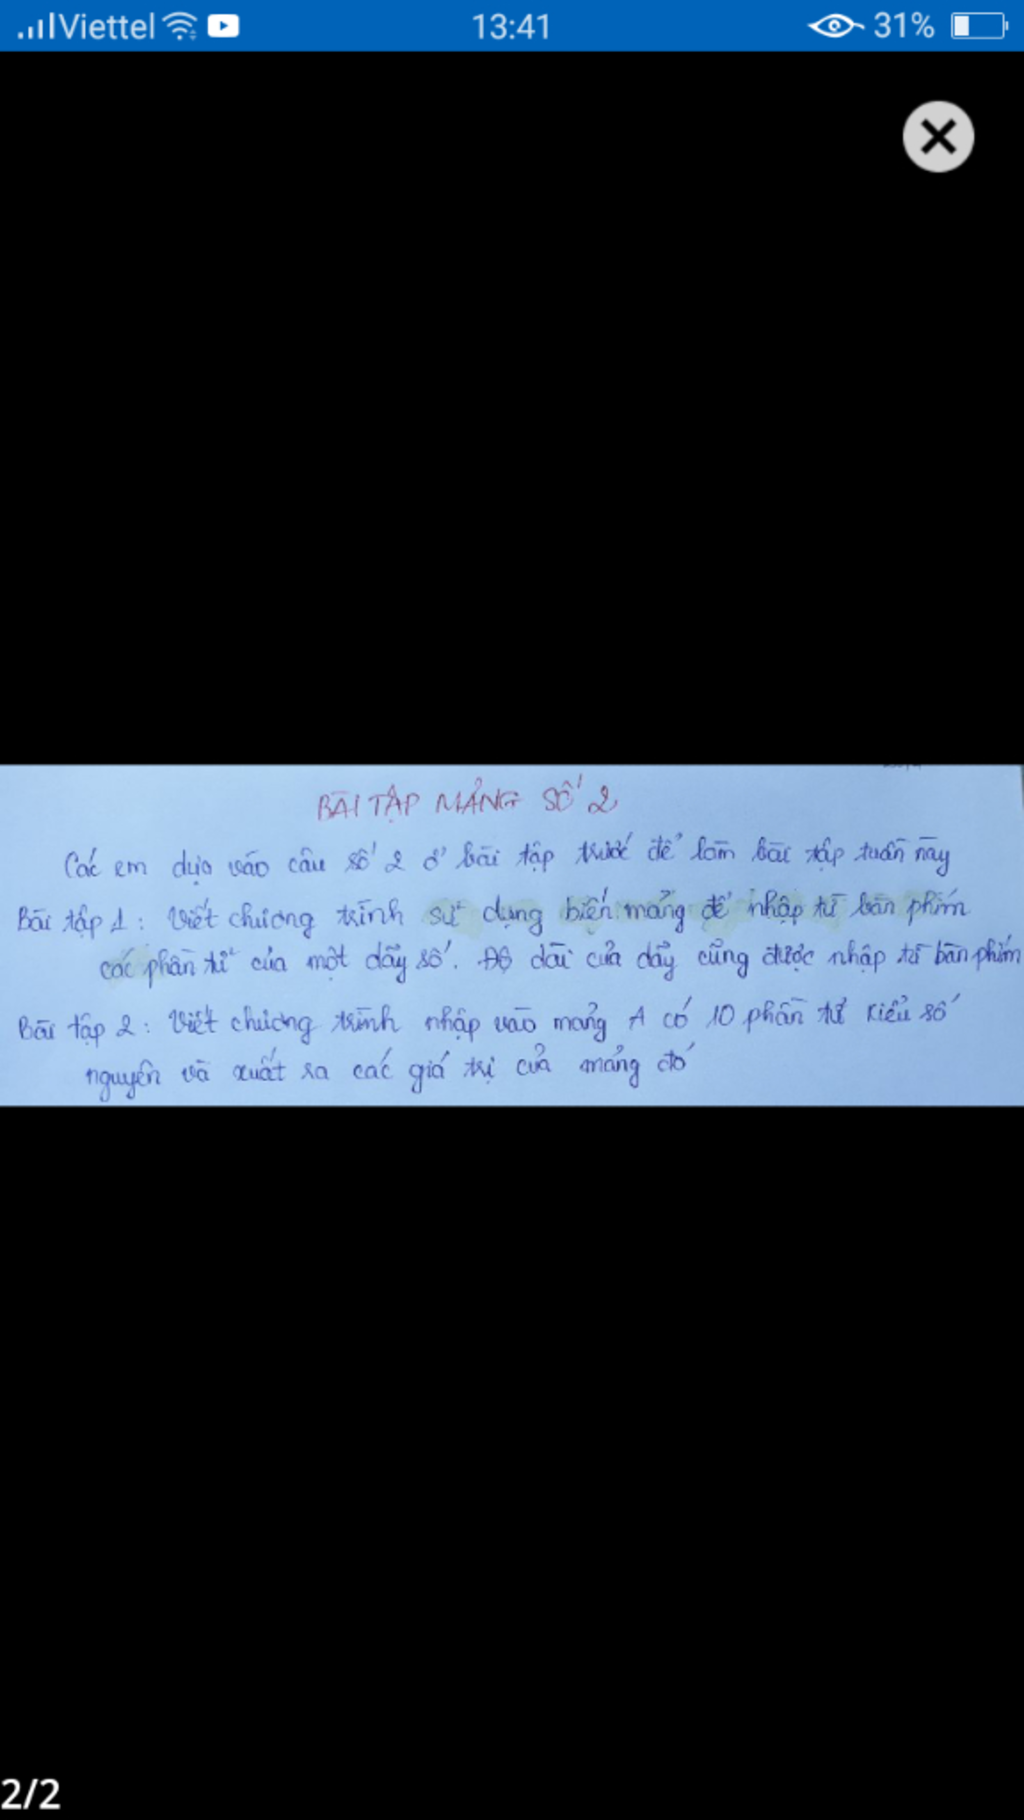 Viettel 13:41 31%
BÀI TẬP MẢNG SỐ 2
Các em dựa vào câu số 2 ở bài tập trước để làm bài tập tuần này
Bài tập 1: Viết chương trình sử dụng biến mảng để nhập từ bàn phím
các phần tử của một dãy số. Độ dài của dãy cũng được nhập từ bàn phím
Bài tập 2: Viết chương trình nhập vào mảng A có 10 phần tử kiểu số
nguyên và xuất ra các giá trị của mảng đó
2/2